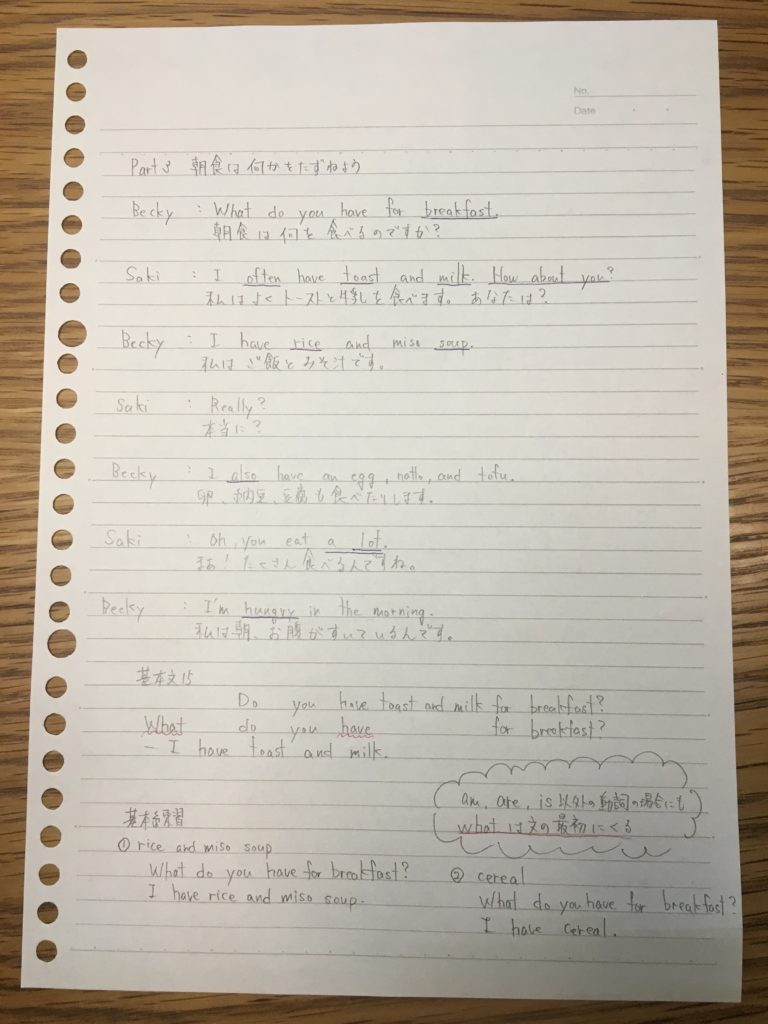 No.
Date
Part 3 朝食は何かをたずねよう
Becky : What do you have for breakfast.
朝食は何を食べるのですか?
Saki : I often have toast and milk. How about you?
私はよくトーストと牛乳を食べます。あなたは?
Becky : I have rice and miso soup.
私はご飯とみそ汁です。
Saki : Really?
本当に?
Becky : I also have an egg, natto, and tofu.
卵、納豆、豆腐も食べたりします。
Saki : Oh, you eat a lot.
まあ!たくさん食べるんですね。
Becky : I'm hungry in the morning.
私は朝、お腹がすいているんです。
基本文15
Do you have toast and milk for breakfast?
What do you have for breakfast?
— I have toast and milk.
am, are, is以外の動詞の場合にも
whatは文の最初にくる
基本練習
① rice and miso soup
What do you have for breakfast?
I have rice and miso soup.
② cereal
What do you have for breakfast?
I have cereal.